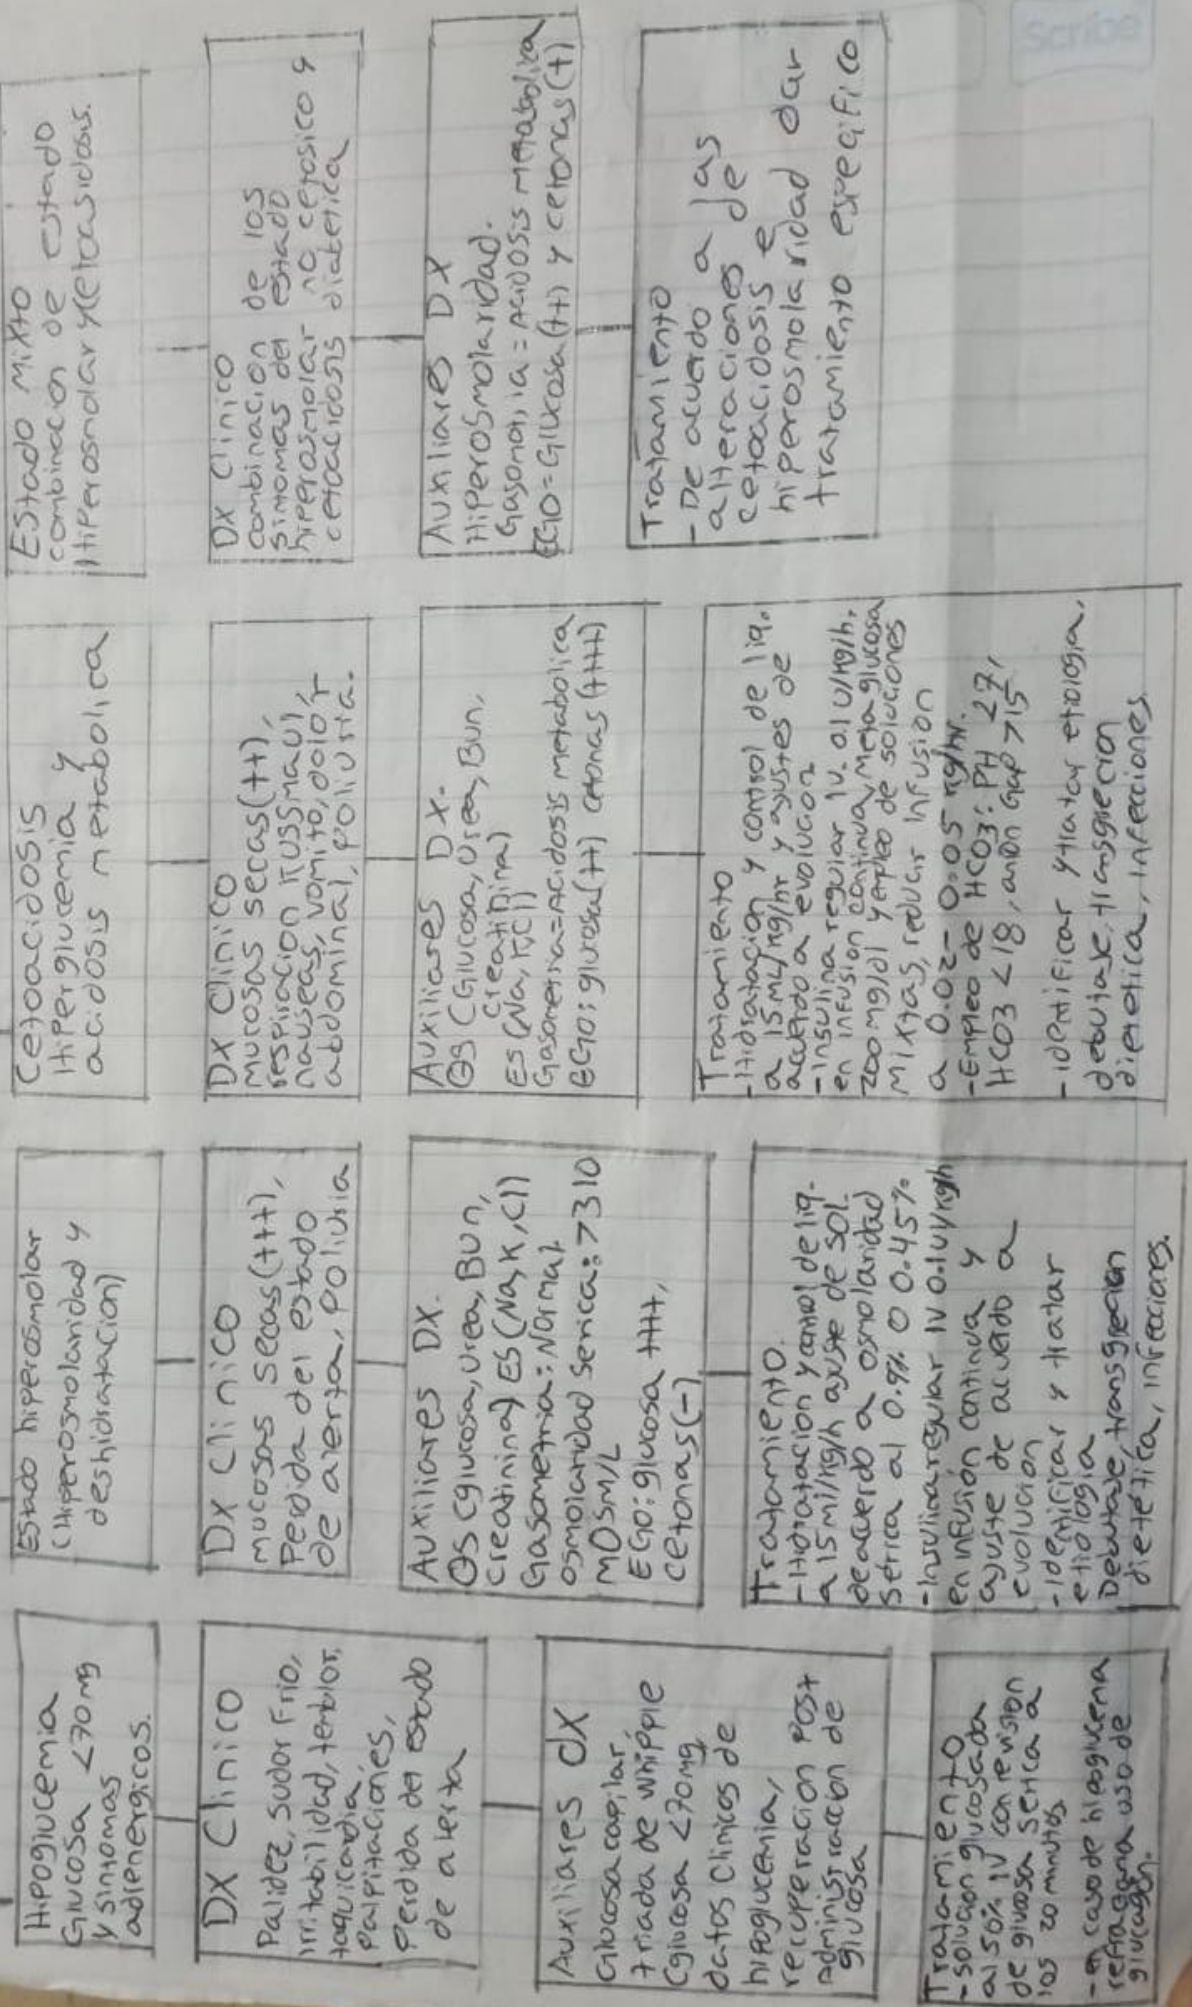 Hipoglucemia
Glucosa <70mg
y sintomas
adrenergicos.
DX Clinico
Palidez, sudor frio,
irritabilidad, temblor,
taquicardia,
palpitaciones,
Perdida del estado
de alerta
Auxiliares dx
Glucosa capilar
triada de whipple
(glucosa <70mg,
datos clinicos de
hipoglucemia,
recuperacion post
administracion de
glucosa
Tratamiento
-solucion glucosada
al 50% IV con revision
de glucosa serica a
los 20 minutos.
-en caso de hipoglucemia
refractaria uso de
glucagon.
Estado hiperosmolar
(Hiperosmolaridad y
deshidratacion)
DX Clinico
mucosas secas(+++),
Perdida del estado
de alerta, poliuria
Auxiliares DX.
QS (glucosa, urea, BUN,
creatinina) ES (Na, K, Cl)
Gasometria: Normal.
osmolaridad serica: >310
mOsm/L
EGO: glucosa +++,
cetonas(-)
Tratamiento.
-Hidratacion y control de liq.
a 15 ml/kg/h ajuste de sol.
de acuerdo a osmolaridad
serica al 0.9% o 0.45%
-Insulina regular IV 0.1U/kg/h
en infusión continua y
ajuste de acuerdo a
evolucion
-Identificar y tratar
etiologia
Debutase, transgrecion
dietética, infecciones.
Cetoacidosis
Hiperglucemia y
acidosis metabolica
DX Clinico
mucosas secas(++),
respiracion Kussmaul,
nauseas, vomito, dolor
abdominal, poliuria.
Auxiliares DX.
QS (Glucosa, Urea, Bun,
creatinina)
ES (Na, K, Cl)
Gasometria=Acidosis metabolica
EGO: glucosa(++) cetonas(+++)
Tratamiento
-Hidratacion y control de liq.
a 15 mL/kg/hr y ajustes de
acuerdo a evolucion
-Insulina regular IV. 0.1 U/kg/h,
en infusion continua, Meta glucosa
200 mg/dl y empleo de soluciones
mixtas, reducir infusion
a 0.02-0.05 kg/hr.
-Empleo de HCO3: PH <7,
HCO3 <18, anion Gap >15
-identificar y tratar etiologia.
debutase, transgrecion
dietetica, infecciones
Estado mixto
combinacion de estado
Hiperosmolar y cetoacidosis.
DX Clinico
combinacion de los
sintomas del estado
hiperosmolar no cetosico y
cetoacidosis diabetica
Auxiliares DX
Hiperosmolaridad.
Gasometria = Acidosis metabolica
EGO=Glucosa(++) y cetonas(+)
Tratamiento
-De acuerdo a las
alteraciones de
cetoacidosis e
hiperosmolaridad dar
tratamiento especifico
Scribe